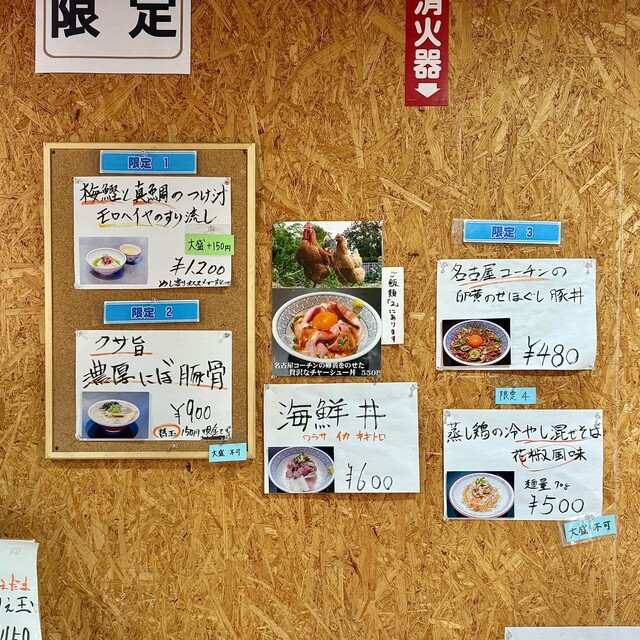 限定
消火器
限定 1
梅鰹と真鯛のつけ汁
モロヘイヤのすり流し
大盛+150円
¥1.200
限定 2
クサ旨
濃厚にぼ豚骨
¥900
替玉 150円 現金です
大盛 不可
名古屋コーチンの卵黄をのせた
贅沢なチャーシュー丼 550円
ご飯類「2」にあります
海鮮丼
ワラサ イカ ネギトロ
¥600
限定 3
名古屋コーチンの
卵黄のせほぐし豚丼
¥480
限定 4
蒸し鶏の冷やし混ぜそば
花椒風味
麺量 70g
¥500
大盛 不可
え玉